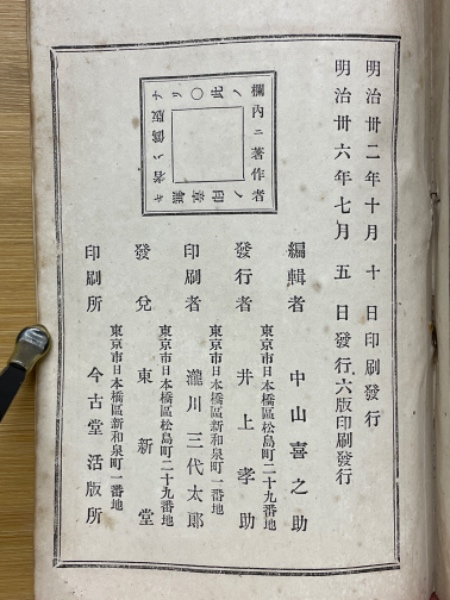 明治卅二年十月十日印刷發行
明治卅六年七月五日發行六版印刷發行
編輯者 中山喜之助
東京市日本橋區松島町二十九番地
發行者 井上孝助
東京市日本橋區新和泉町一番地
印刷者 瀧川三代太郎
東京市日本橋區松島町二十九番地
發兌 東新堂
東京市日本橋區新和泉町一番地
印刷所 今古堂活版所
欄內ニ著作者
ノ
此〇ヲ
ナ版僞ハ者キ